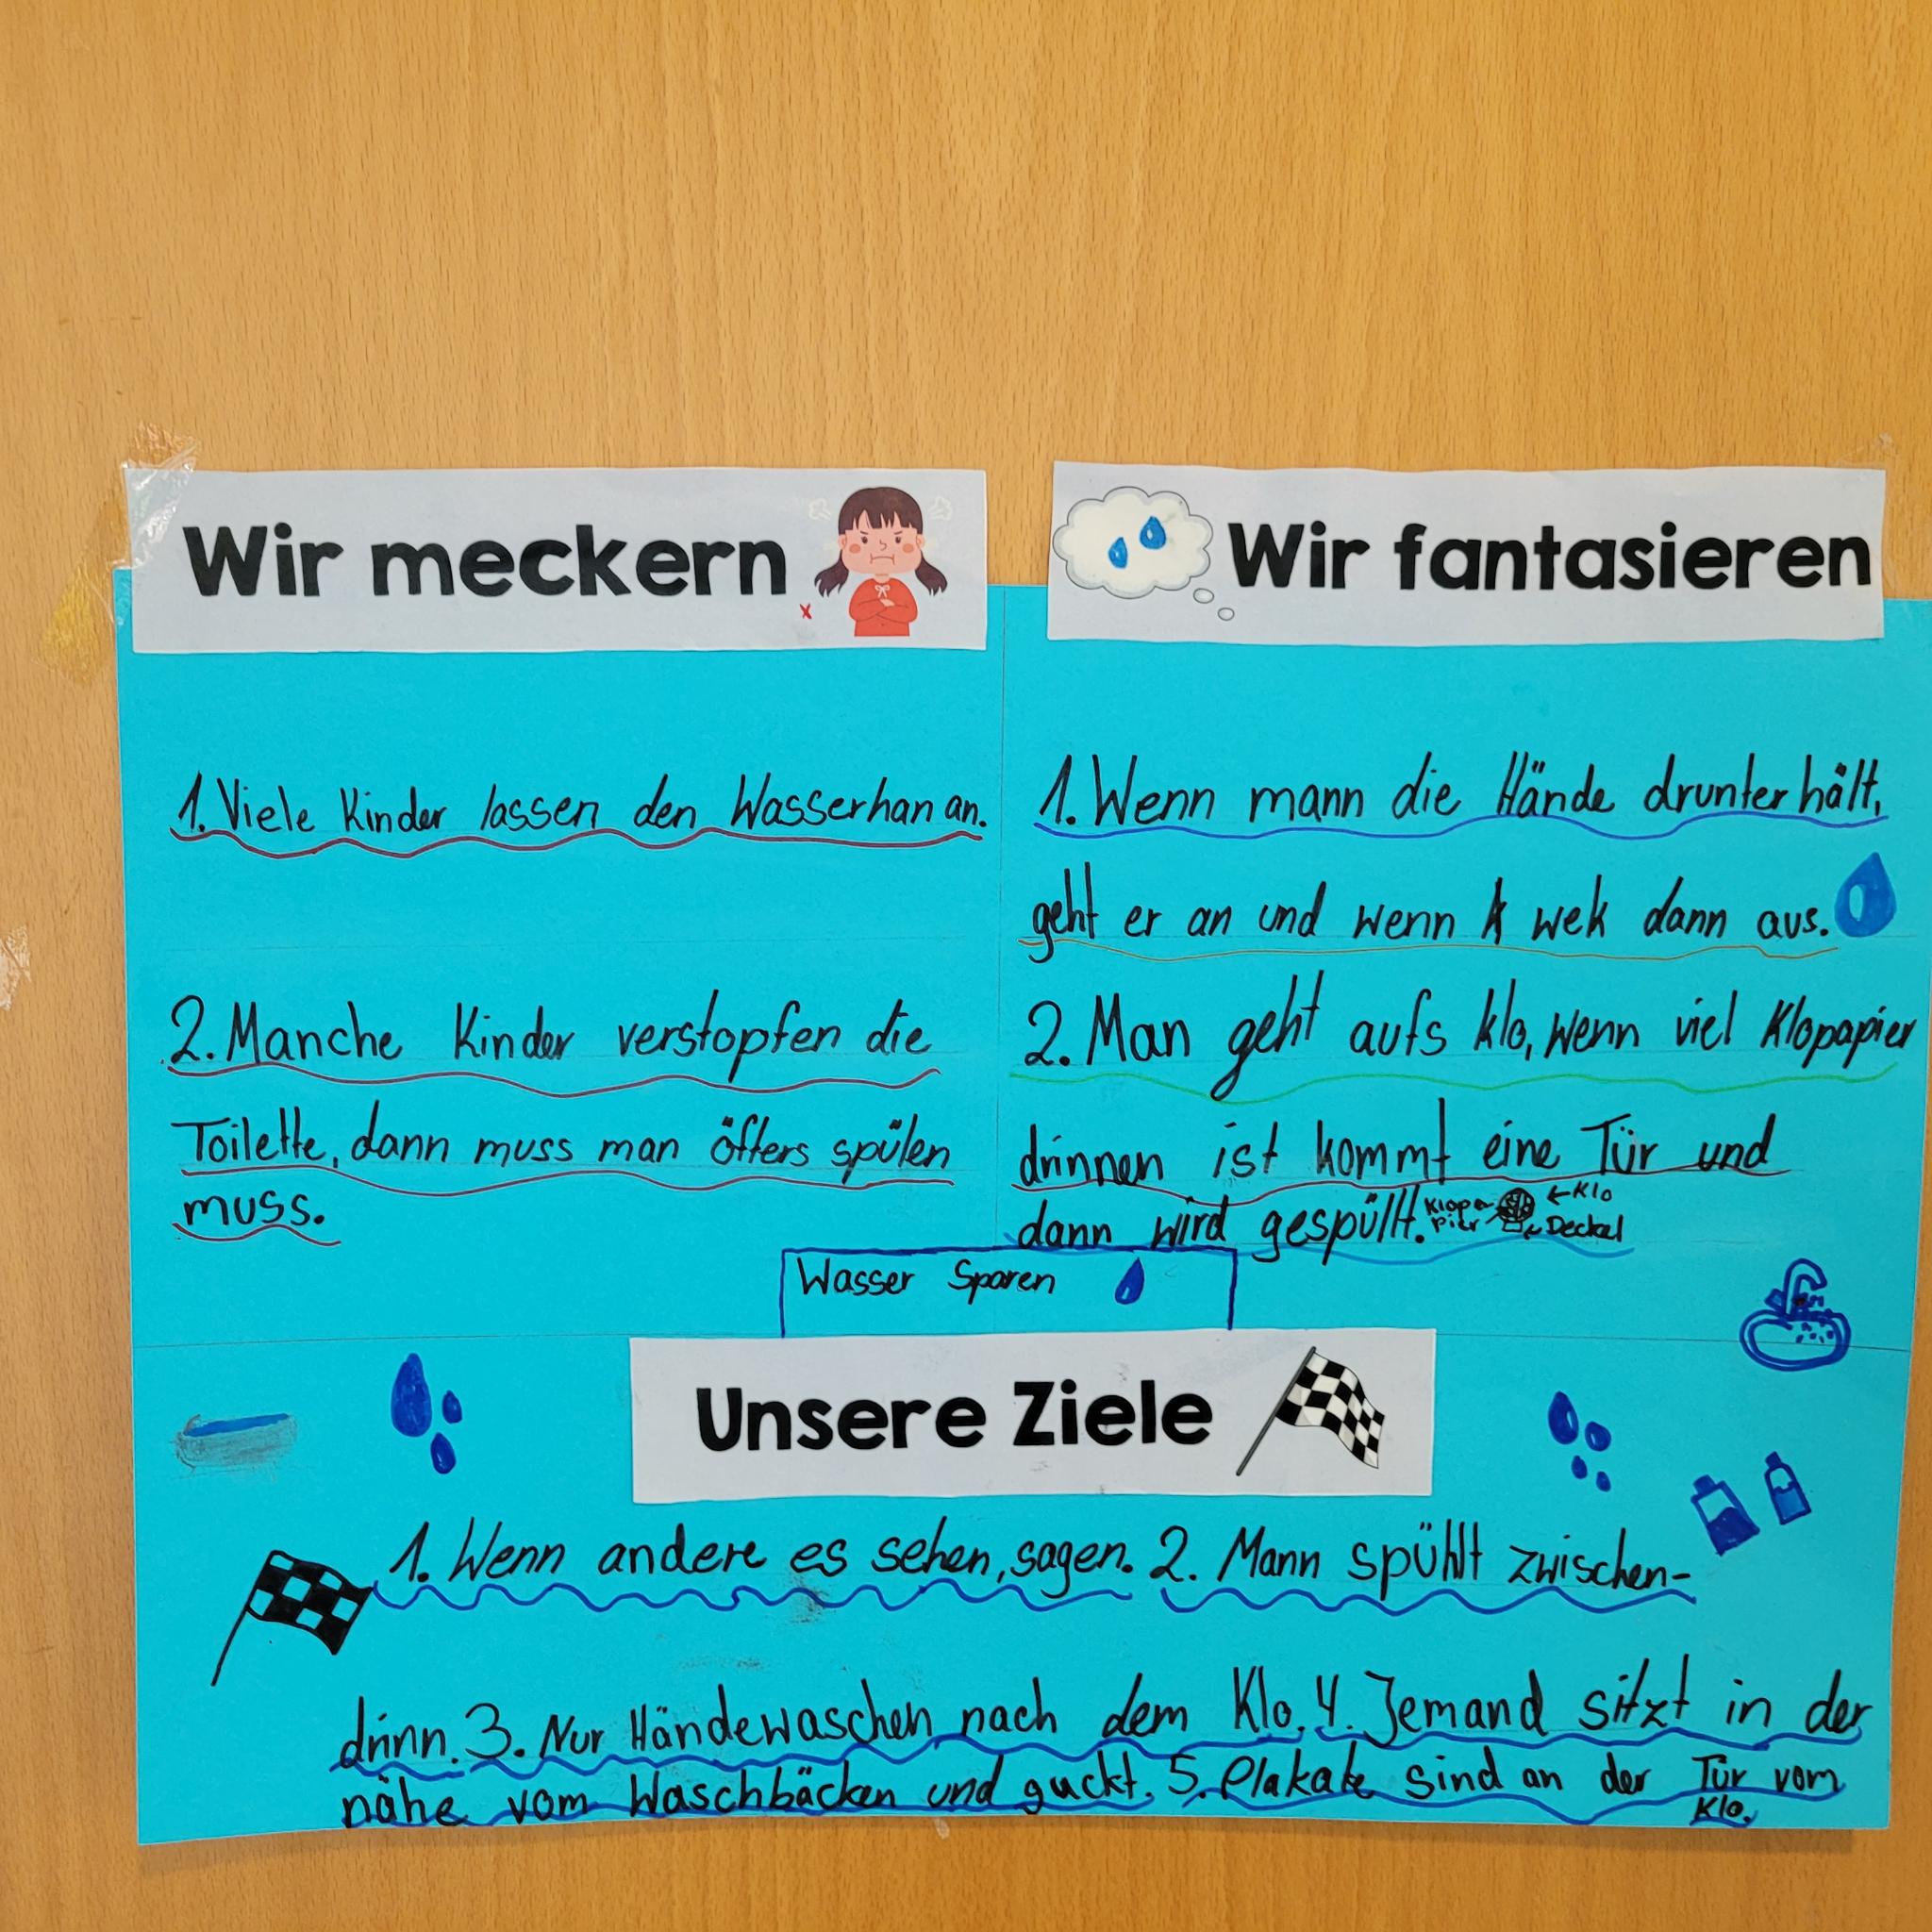 Wir meckern
1. Viele Kinder lassen den Wasserhan an.
2. Manche Kinder verstopfen die
Toilette, dann muss man öfters spülen
muss.
Wir fantasieren
1. Wenn mann die Hände drunter hält,
geht er an und wenn wek dann aus.
2. Man geht aufs klo, wenn viel Klopapier
drinnen ist kommt eine Tür und
dann wird gespüllt.
Klopa
pier
←Klo
Deckel
Wasser Sparen
Unsere Ziele
1. Wenn andere es sehen, sagen. 2. Mann spühlt zwischen-
drinn. 3. Nur Händewaschen nach dem Klo. 4. Jemand sitzt in der
nähe vom Waschbäcken und guckt. 5. Plakate sind an der Tür vom
Klo.